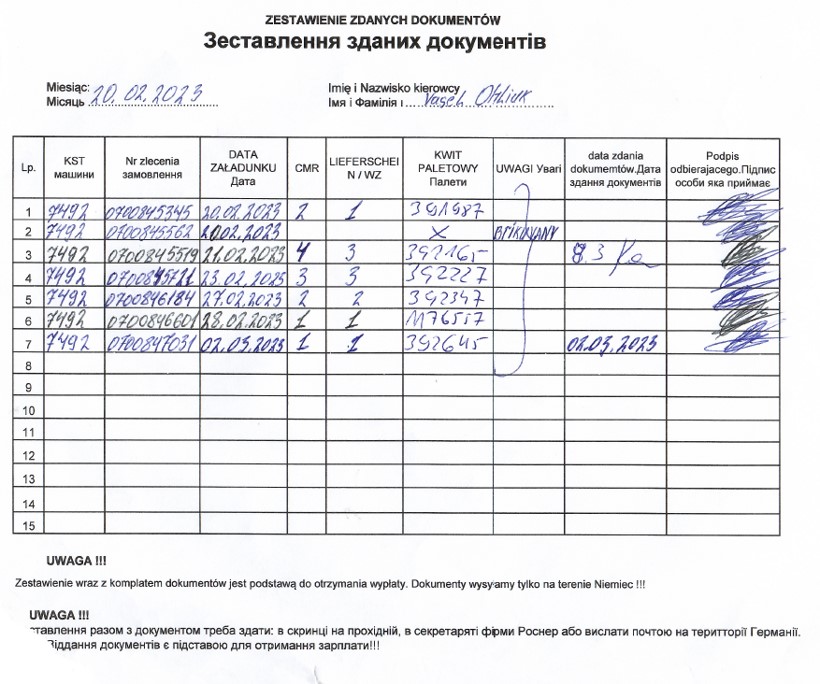 ZESTAWIENIE ZDANYCH DOKUMENTÓW
Зеставлення зданих документів
Miesiąc: Imię i Nazwisko kierowcy
Місяць 20.02.2023 Імя і Фамілія і
Lp. KST машини Nr zlecenia замовлення DATA ZAŁADUNKU Дата CMR LIEFERSCHEI N / WZ KWIT PALETOWY Палети UWAGI Уваґі data zdania dokumemtów.Дата здання документів Podpis odbierajacego.Підпис особи яка приймає
1 7492 0700845345 20.02.2023 2 1 391987
2 7492 0700845562 20.02.2023 X
3 7492 0700845519 21.02.2023 4 3
4 7492 23.02.2023 3 3 392227
5 7492 0700846184 27.02.2023 2 2 392347
6 7492 0700846601 28.02.2023 1 1
7 7492 0700847031 02.03.2023 1 1 392645 02.03.2023
8
9
10
11
12
13
14
15
UWAGA !!!
Zestawienie wraz z komplatem dokumentów jest podstawą do otrzymania wypłaty. Dokumenty wysyłamy tylko na terenie Niemiec !!!
UWAGA !!!
ставлення разом з документом треба здати: в скринці на прохідній, в секретаряті фірми Роснер або вислати почтою на територтії Германії.
Віддання документів є підставою для отримання зарплати!!!